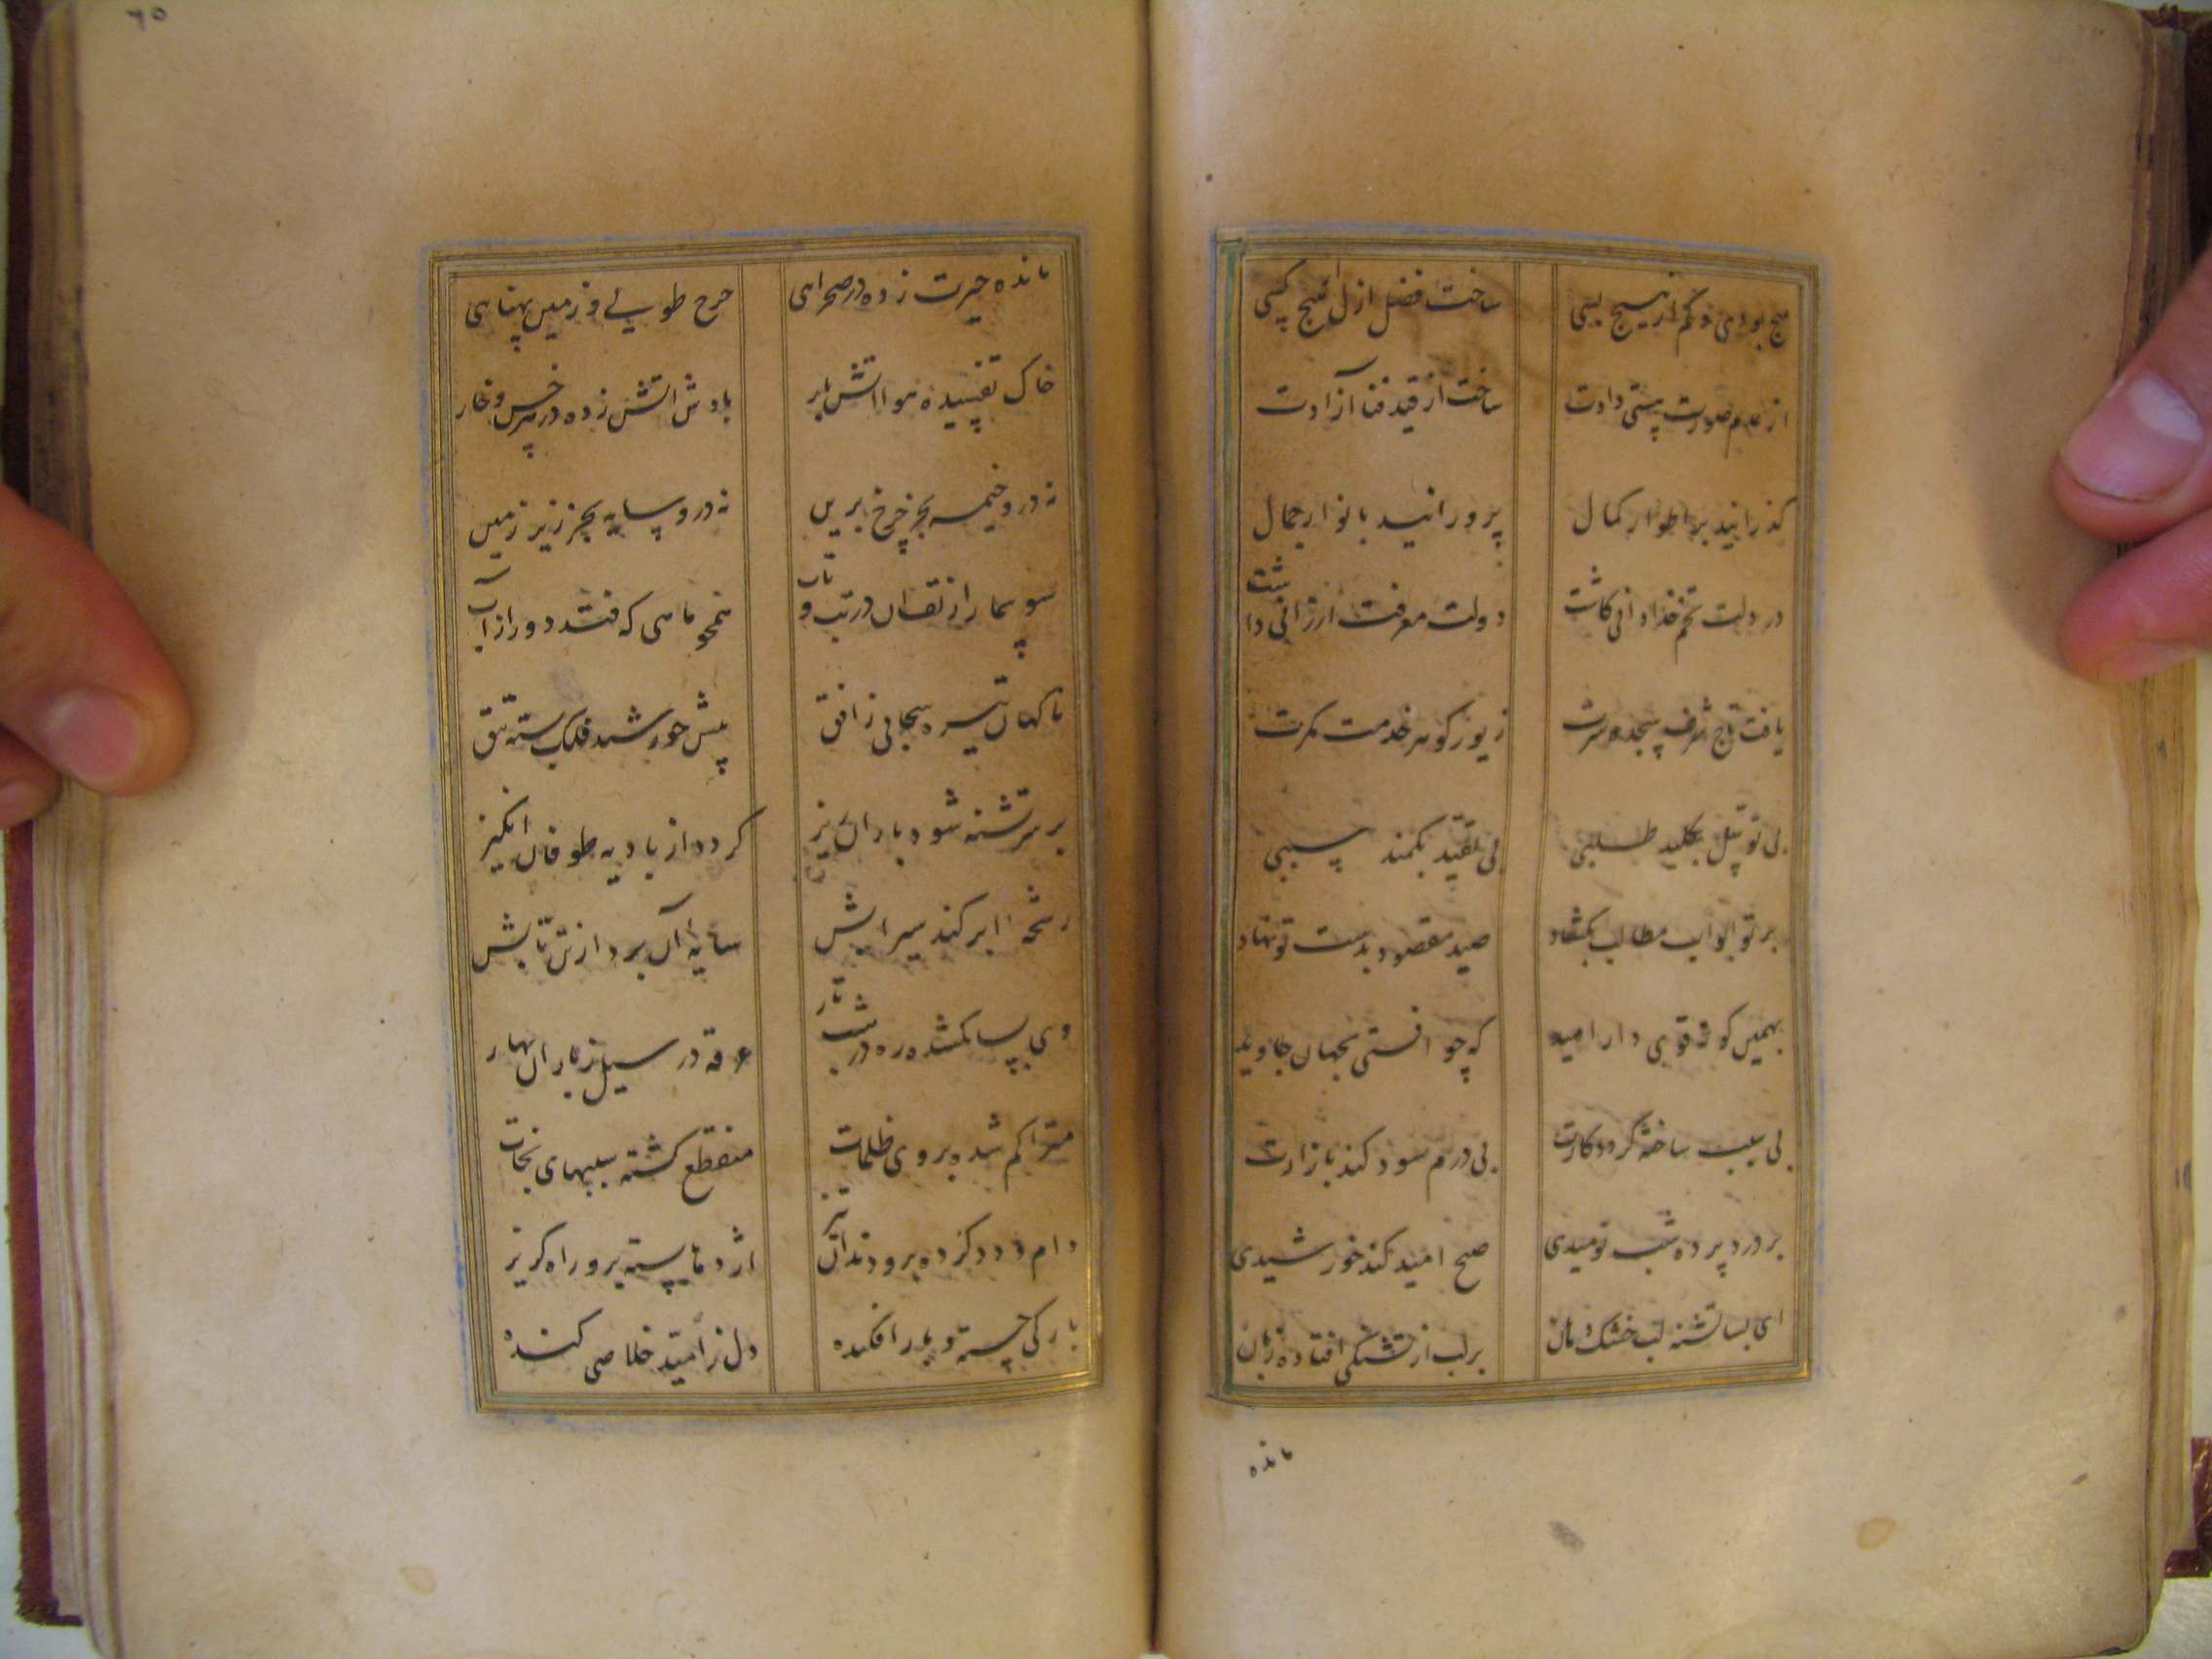 هیچ بودی و کم از هیچ بسی ساخت فضل ازل از هیچ کسی
از عدم صورت هستی دادت ساخت از قید فنا آزادت
گذرانید بر اطوار کمال پرورانید بانوار جمال
در دلت تخم خدادانی کاشت دولت معرفت ارزانی داشت
یافت تاج شرف سجده سرت زیور گوهر خدمت کمرت
بی توسل بکلید طلبی بی تقید بکمند سببی
بر تو ابواب مطالب بکشاد صید مقصود بدست تو نهاد
بهمین گونه قوی دار امید که چو افتی بجهان جاوید
بی سبب ساخته گردد کارت بی درم سود کند بازارت
بر درد پرده شب نومیدی صبح امید کند خورشیدی
ای بسا تشنه لب خشک دهان بر لب از تشنگی افتاده زبان
مانده
مانده حیرت زده در صحرایی چرخ طولی و زمین پهنایی
خاک تفسیده هوا آتش بار بادش آتش زده در هر خس و خار
نه درو خیمه بجز چرخ برین نه درو سایه بجز زیر زمین
سوسمار از تف آن در تب و تاب همچو ماهی که فتد دور از آب
ناگهان تیره سحابی ز افق پیش خورشید فلک بسته تتق
بر سر تشنه شود باران ریز گردد از بادیه طوفان انگیز
رشحه ابر کند سیرابش سایه آن برد از تن تابش
وی بسا گمشده ره در شب تار غرقه در سیل ز باران بهار
متراکم شده بر وی ظلمات منقطع گشته سببهای نجات
دام و دد کرده برو دندان تیز اژدها بسته برو راه گریز
بارگی جسته و بار افکنده دل ز امید خلاصی کنده